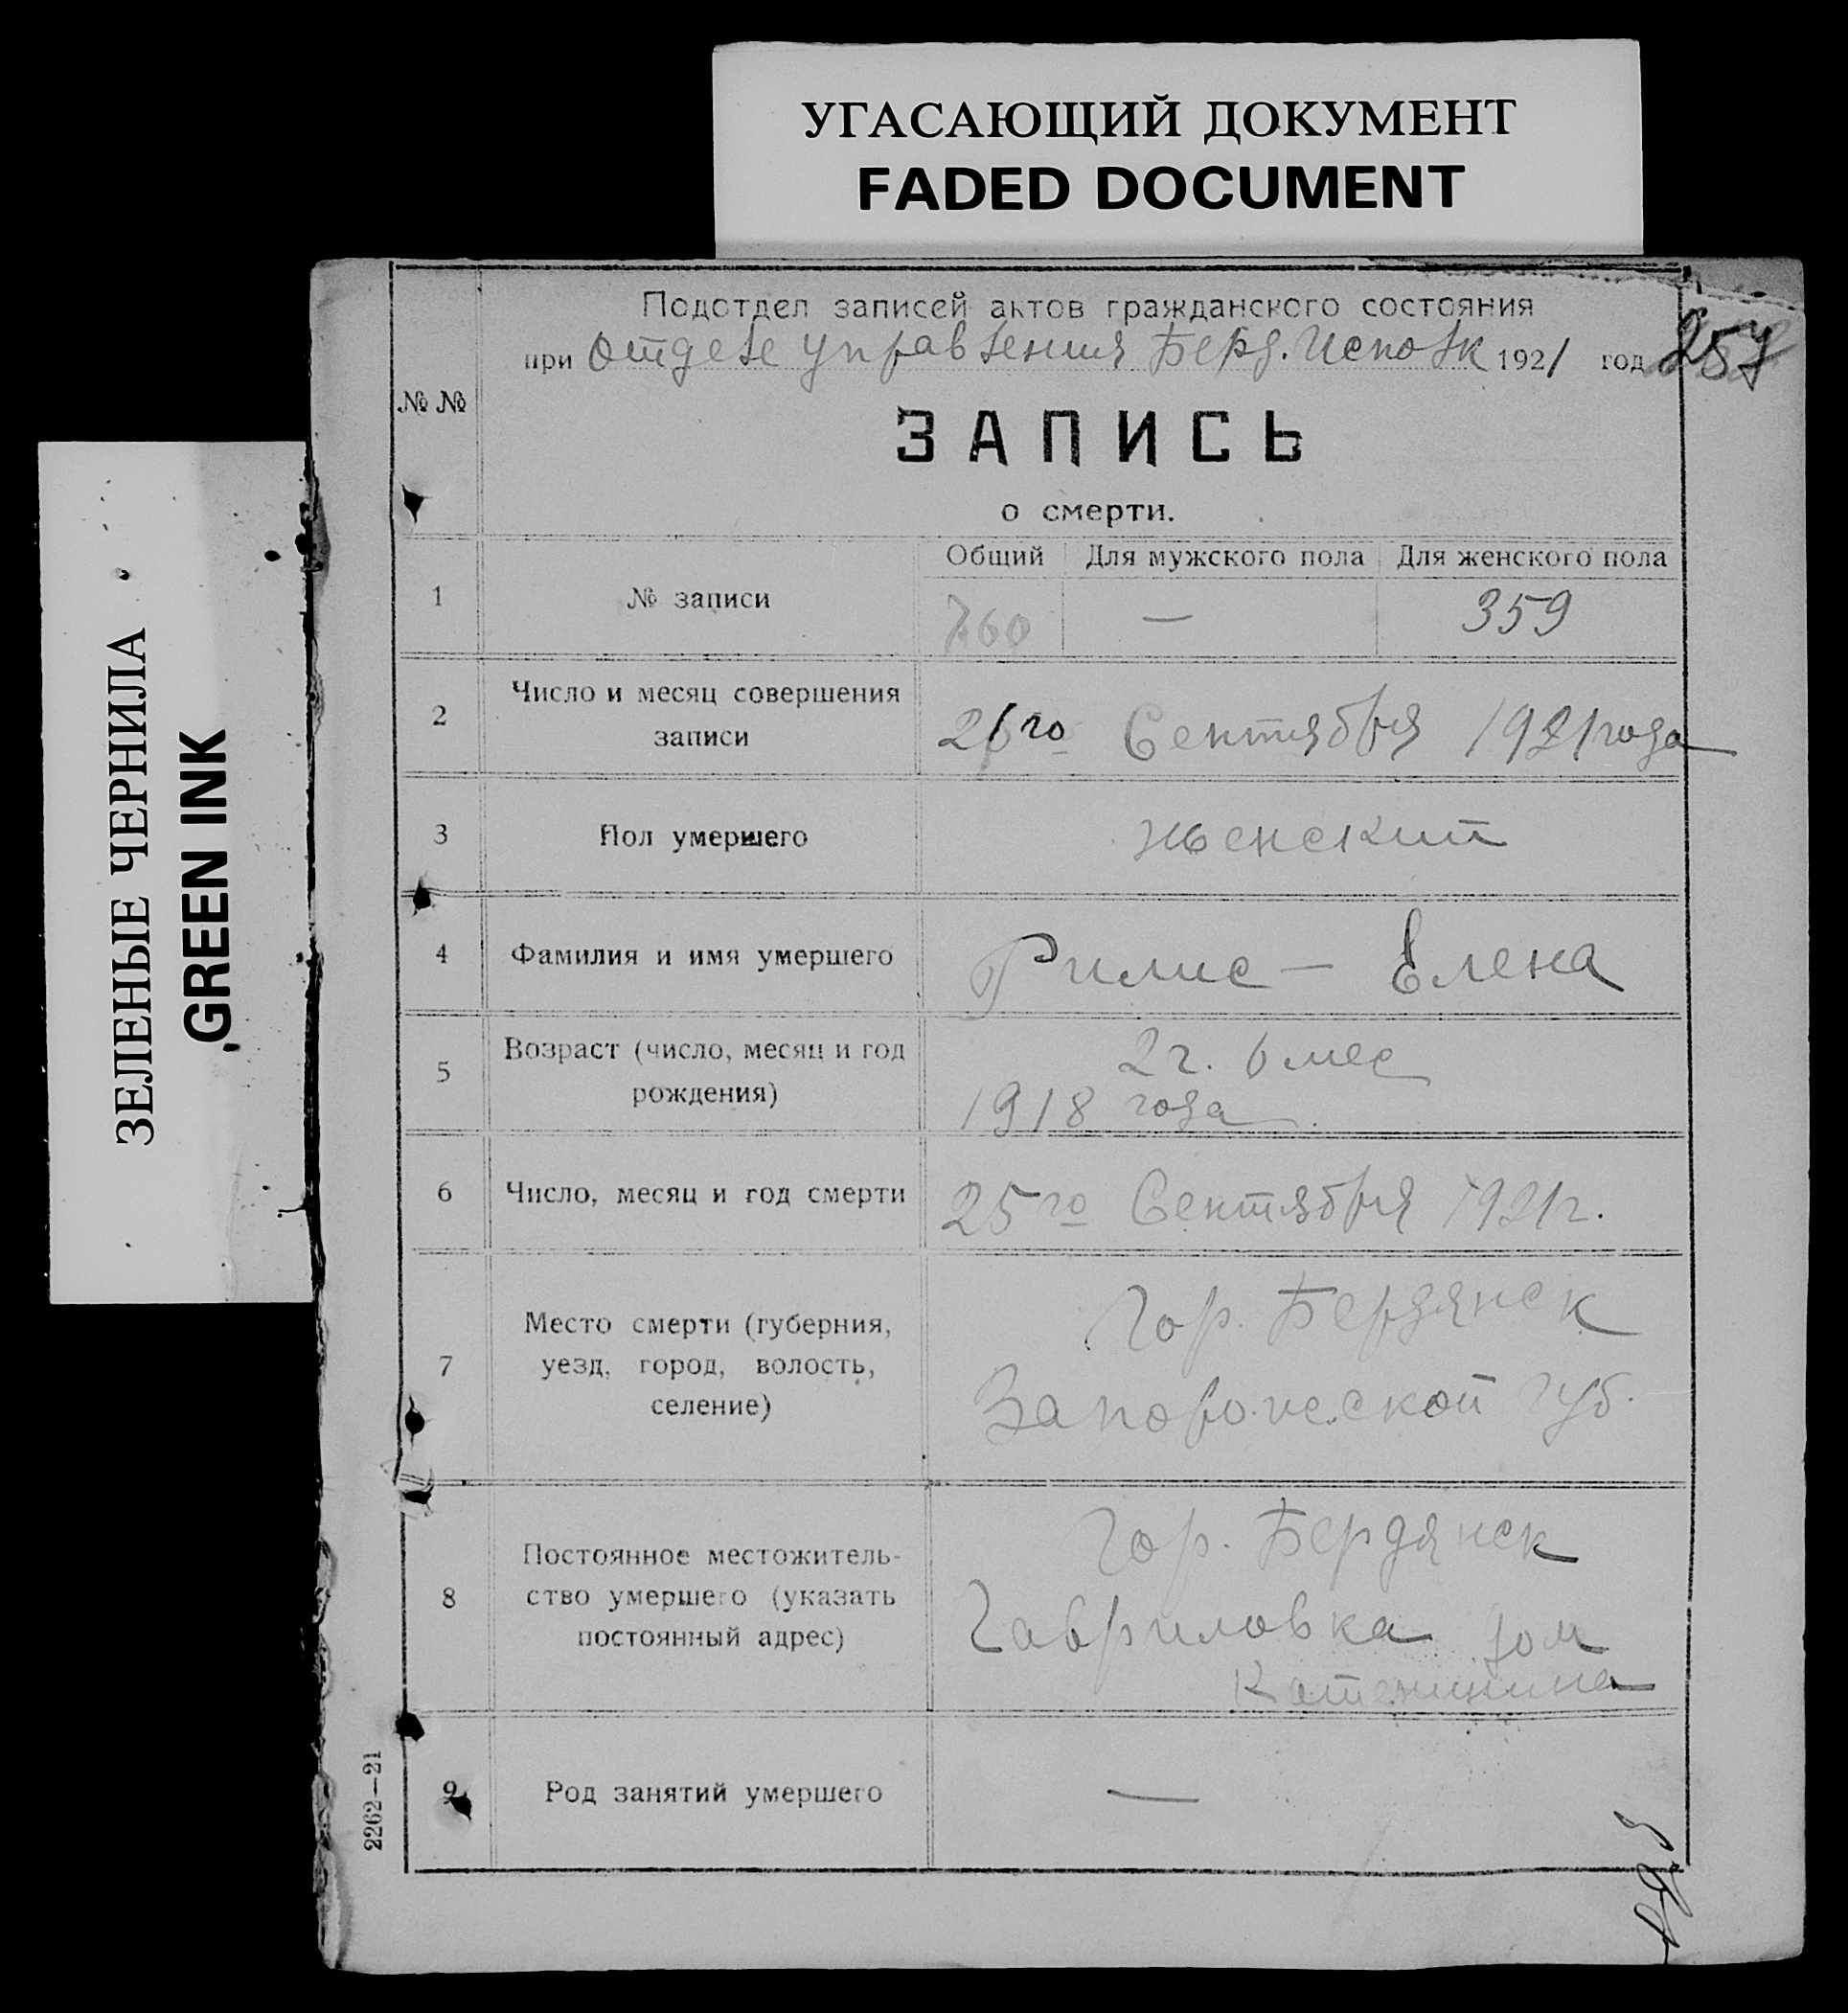 УГАСАЮЩИЙ ДОКУМЕНТ
FADED DOCUMENT
ЗЕЛЕНЫЕ ЧЕРНИЛА
GREEN INK
Подотдел записей актов гражданского состояния
при Отделе управления Берд. Исполк 1921 год
257
№ №
ЗАПИСЬ
о смерти.
Общий Для мужского пола Для женского пола
1 № записи 760 — 359
2 Число и месяц совершения
записи
26го Сентября 1921 года
3 Пол умершего женский
4 Фамилия и имя умершего Рилис — Елена
5 Возраст (число, месяц и год
рождения)
2 г. 6 мес
1918 года
6 Число, месяц и год смерти 25го Сентября 1921 г.
7 Место смерти (губерния,
уезд, город, волость,
селение)
Гор. Бердянск
Запорожеской губ.
8 Постоянное местожитель-
ство умершего (указать
постоянный адрес)
Гор. Бердянск
Гавриловка дом
9 Род занятий умершего —
2262—21